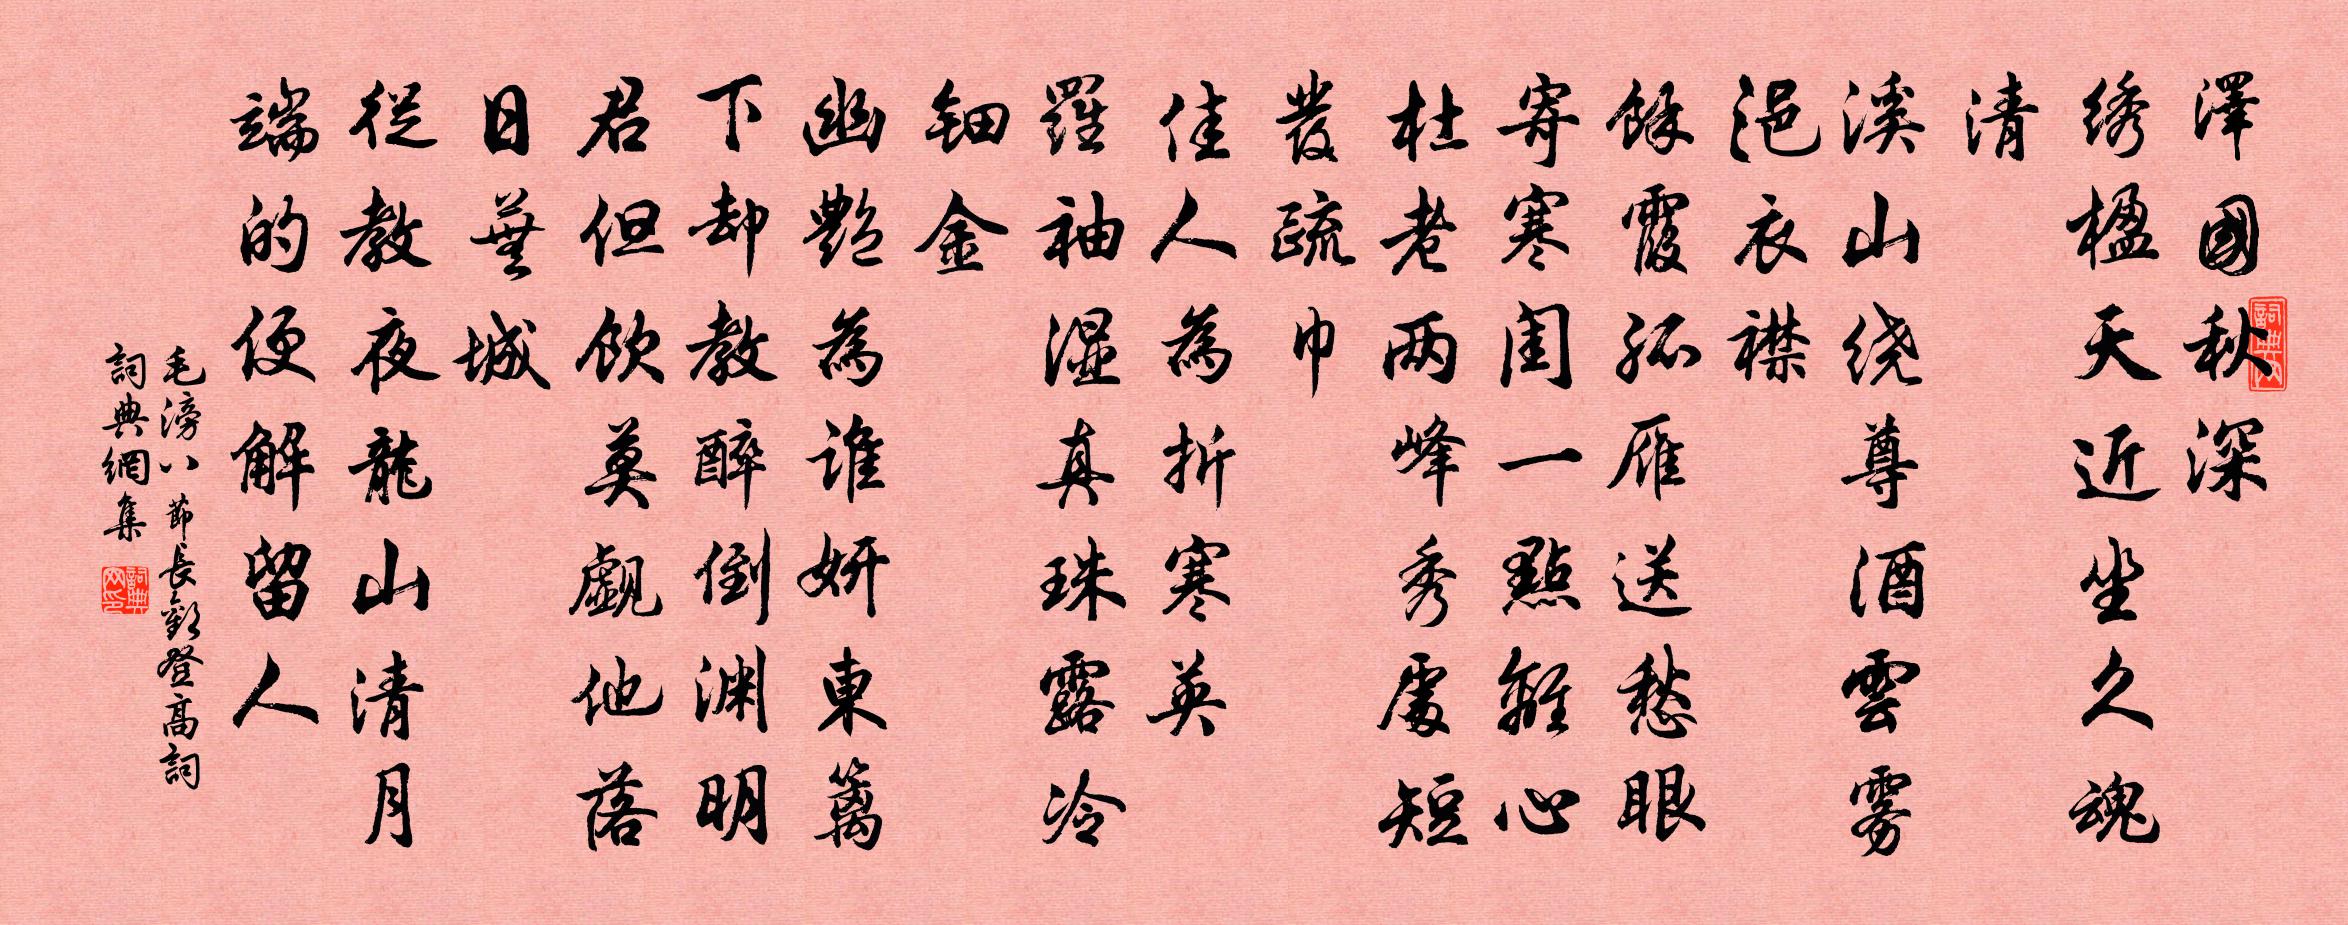 澤國秋深
绣楹天近坐久魂
清
溪山绕尊酒雲雾
浥衣襟
餘霞孤雁送愁眼
寄寒闺一點離心
杜老两峰秀處短
發疏巾
佳人為折寒英
羅袖湿真珠露冷
钿金
幽艷為谁妍東篱
下却教醉倒渊明
君但飲莫觑他落
日蕪城
從教夜龍山清月
端的便解留人
毛滂八節長歡登高詞
詞典網集